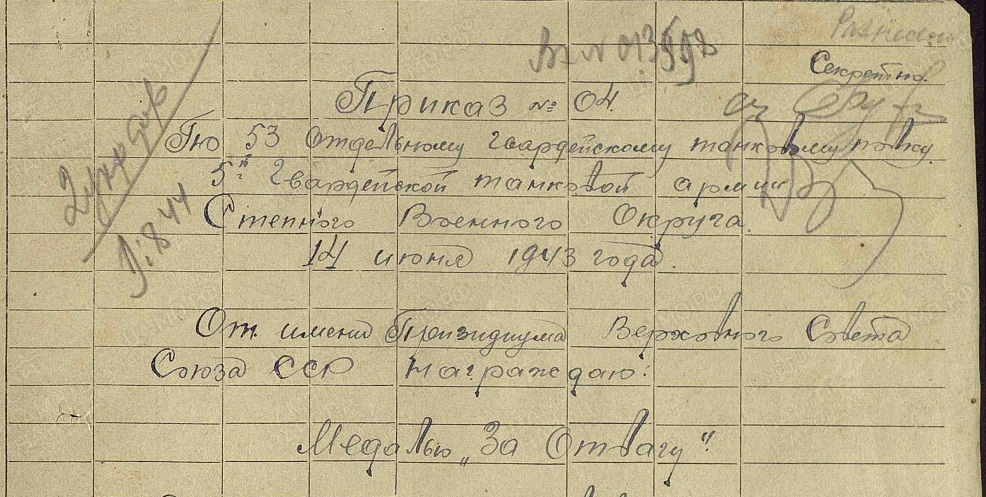 Вх N 013598
Секретно.
Приказ № 04.
По 53 Отдельному Гвардейскому танковому полку
5й Гвардейской танковой армии
Степного Военного Округа.
14 июня 1943 года.
От имени Президиума Верховного Совета
Союза ССР награждаю:
Медалью „За Отвагу"